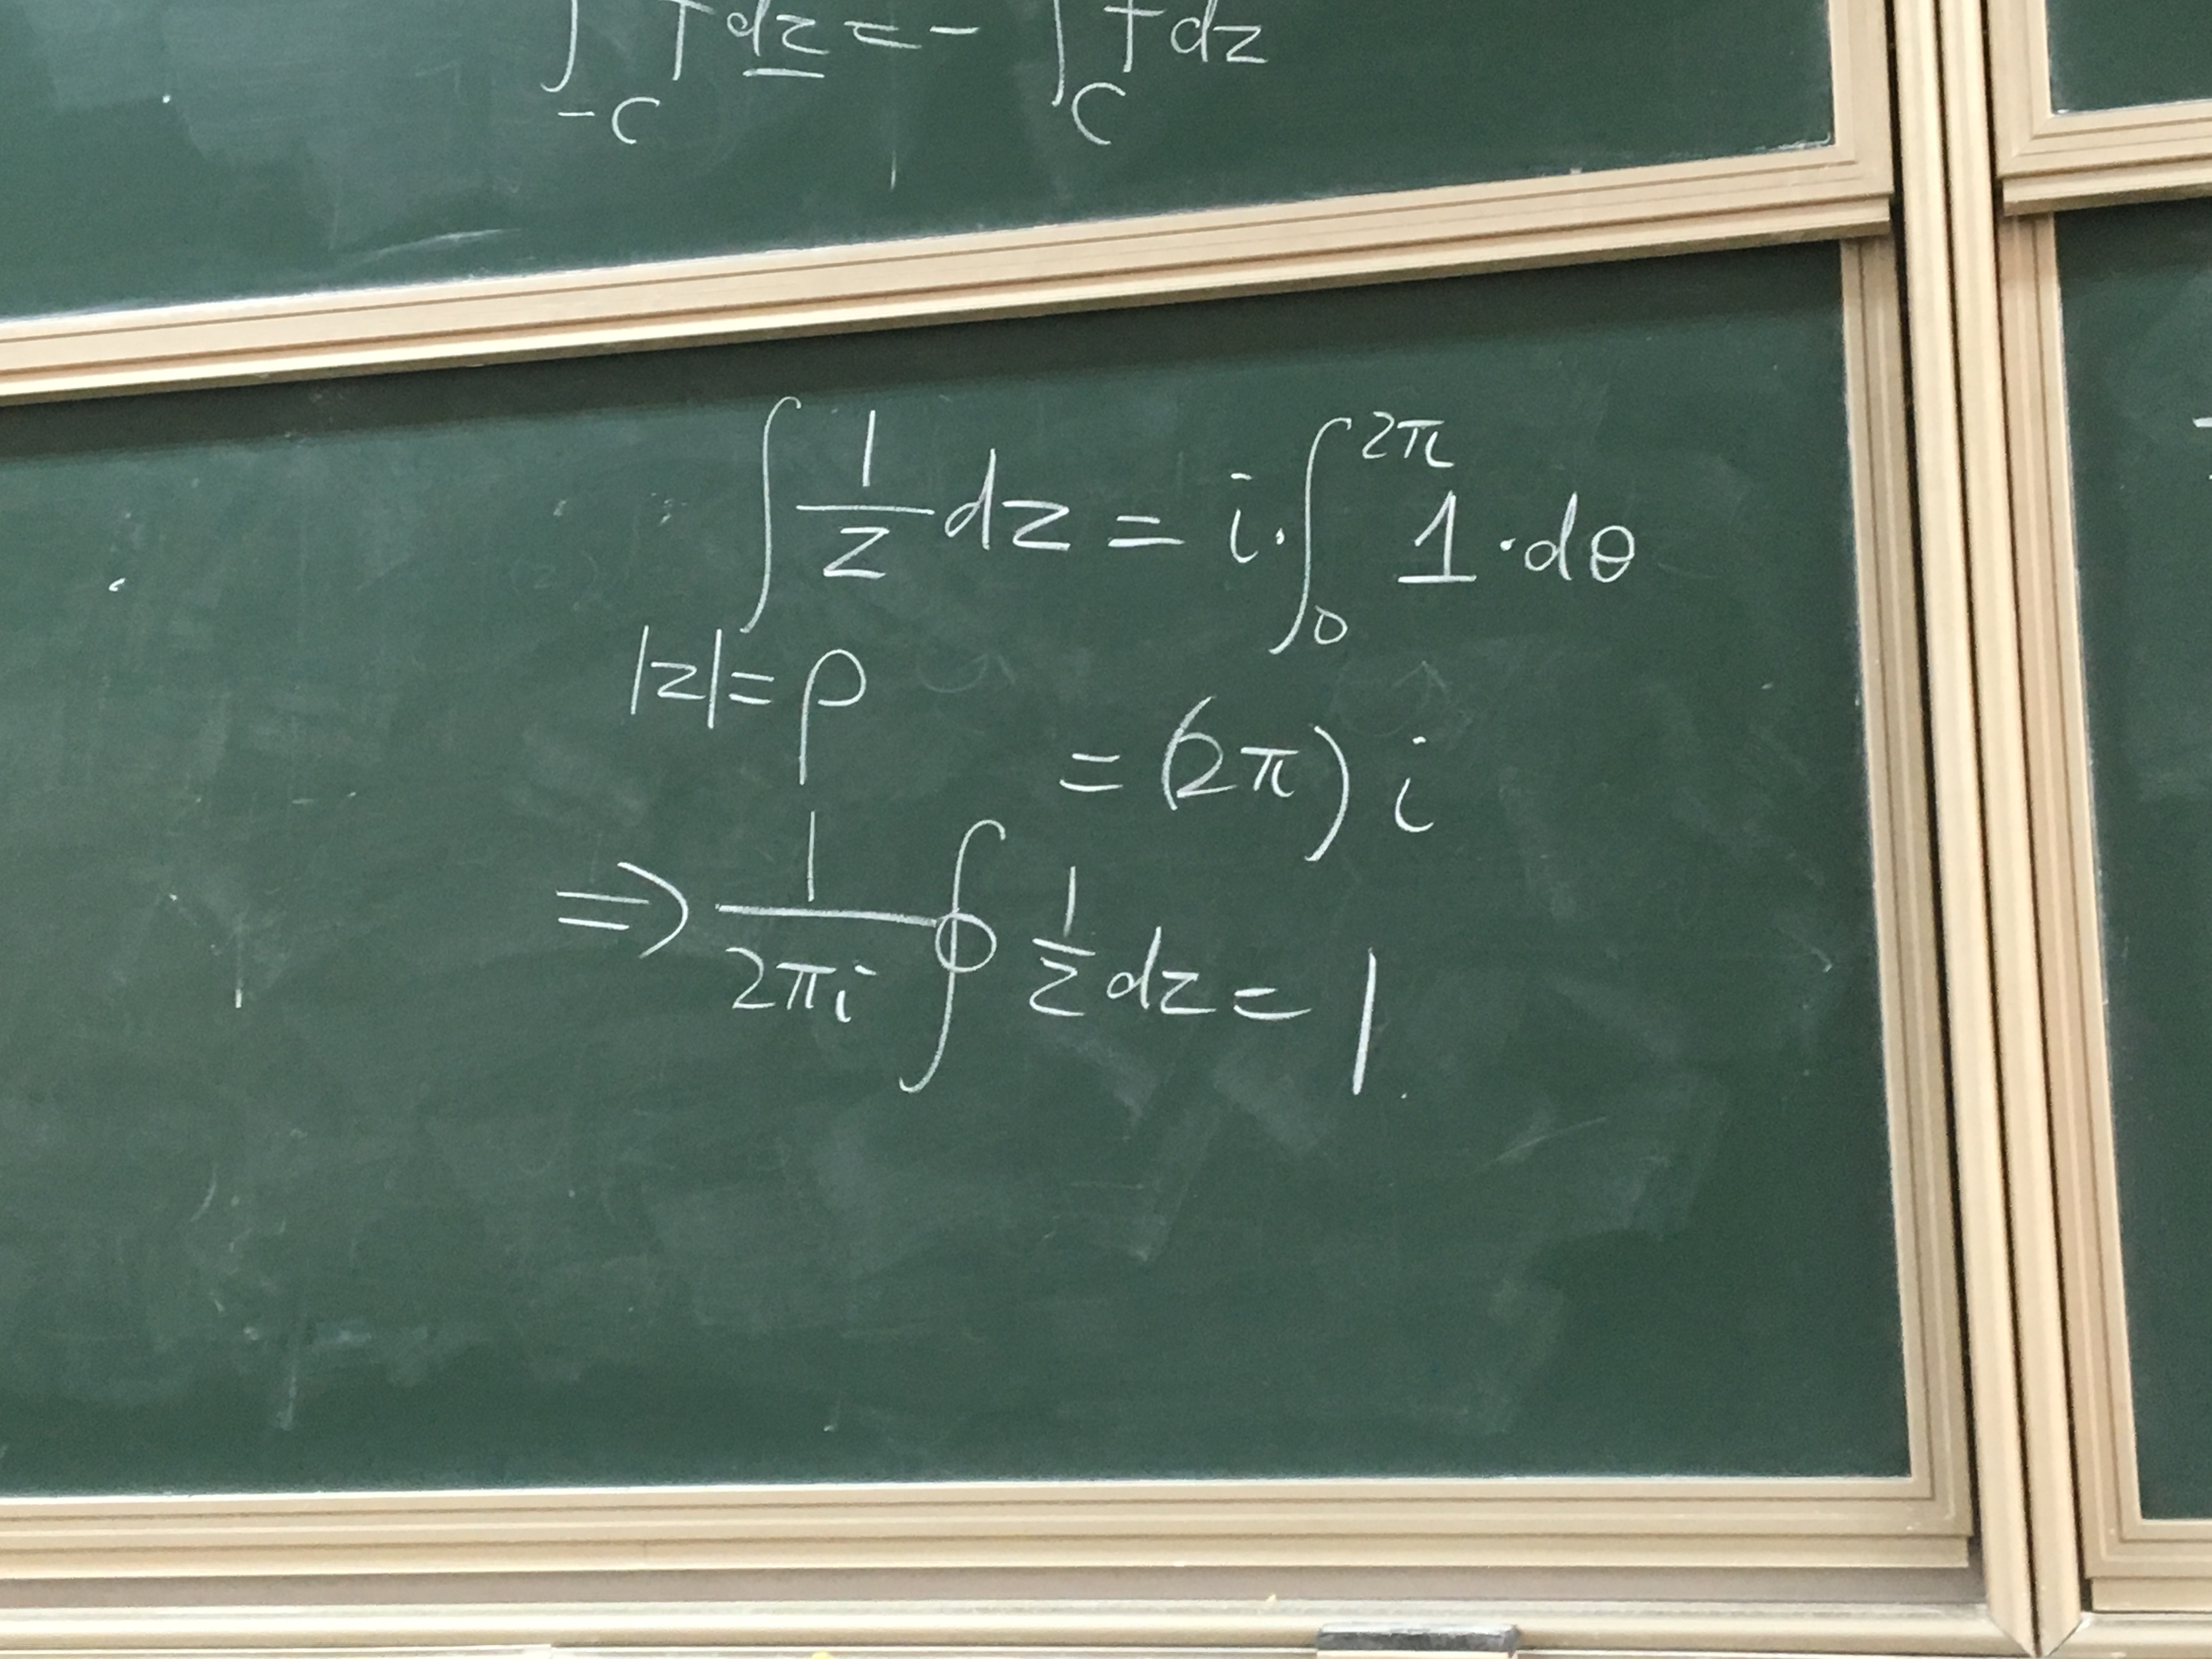 ∫_{-C} f dz = - ∫_C f dz
∫_{|z|=ρ} 1/z dz = i · ∫_0^{2π} 1 · dθ
= (2π) i
⇒ 1/(2πi) ∮ 1/z dz = 1